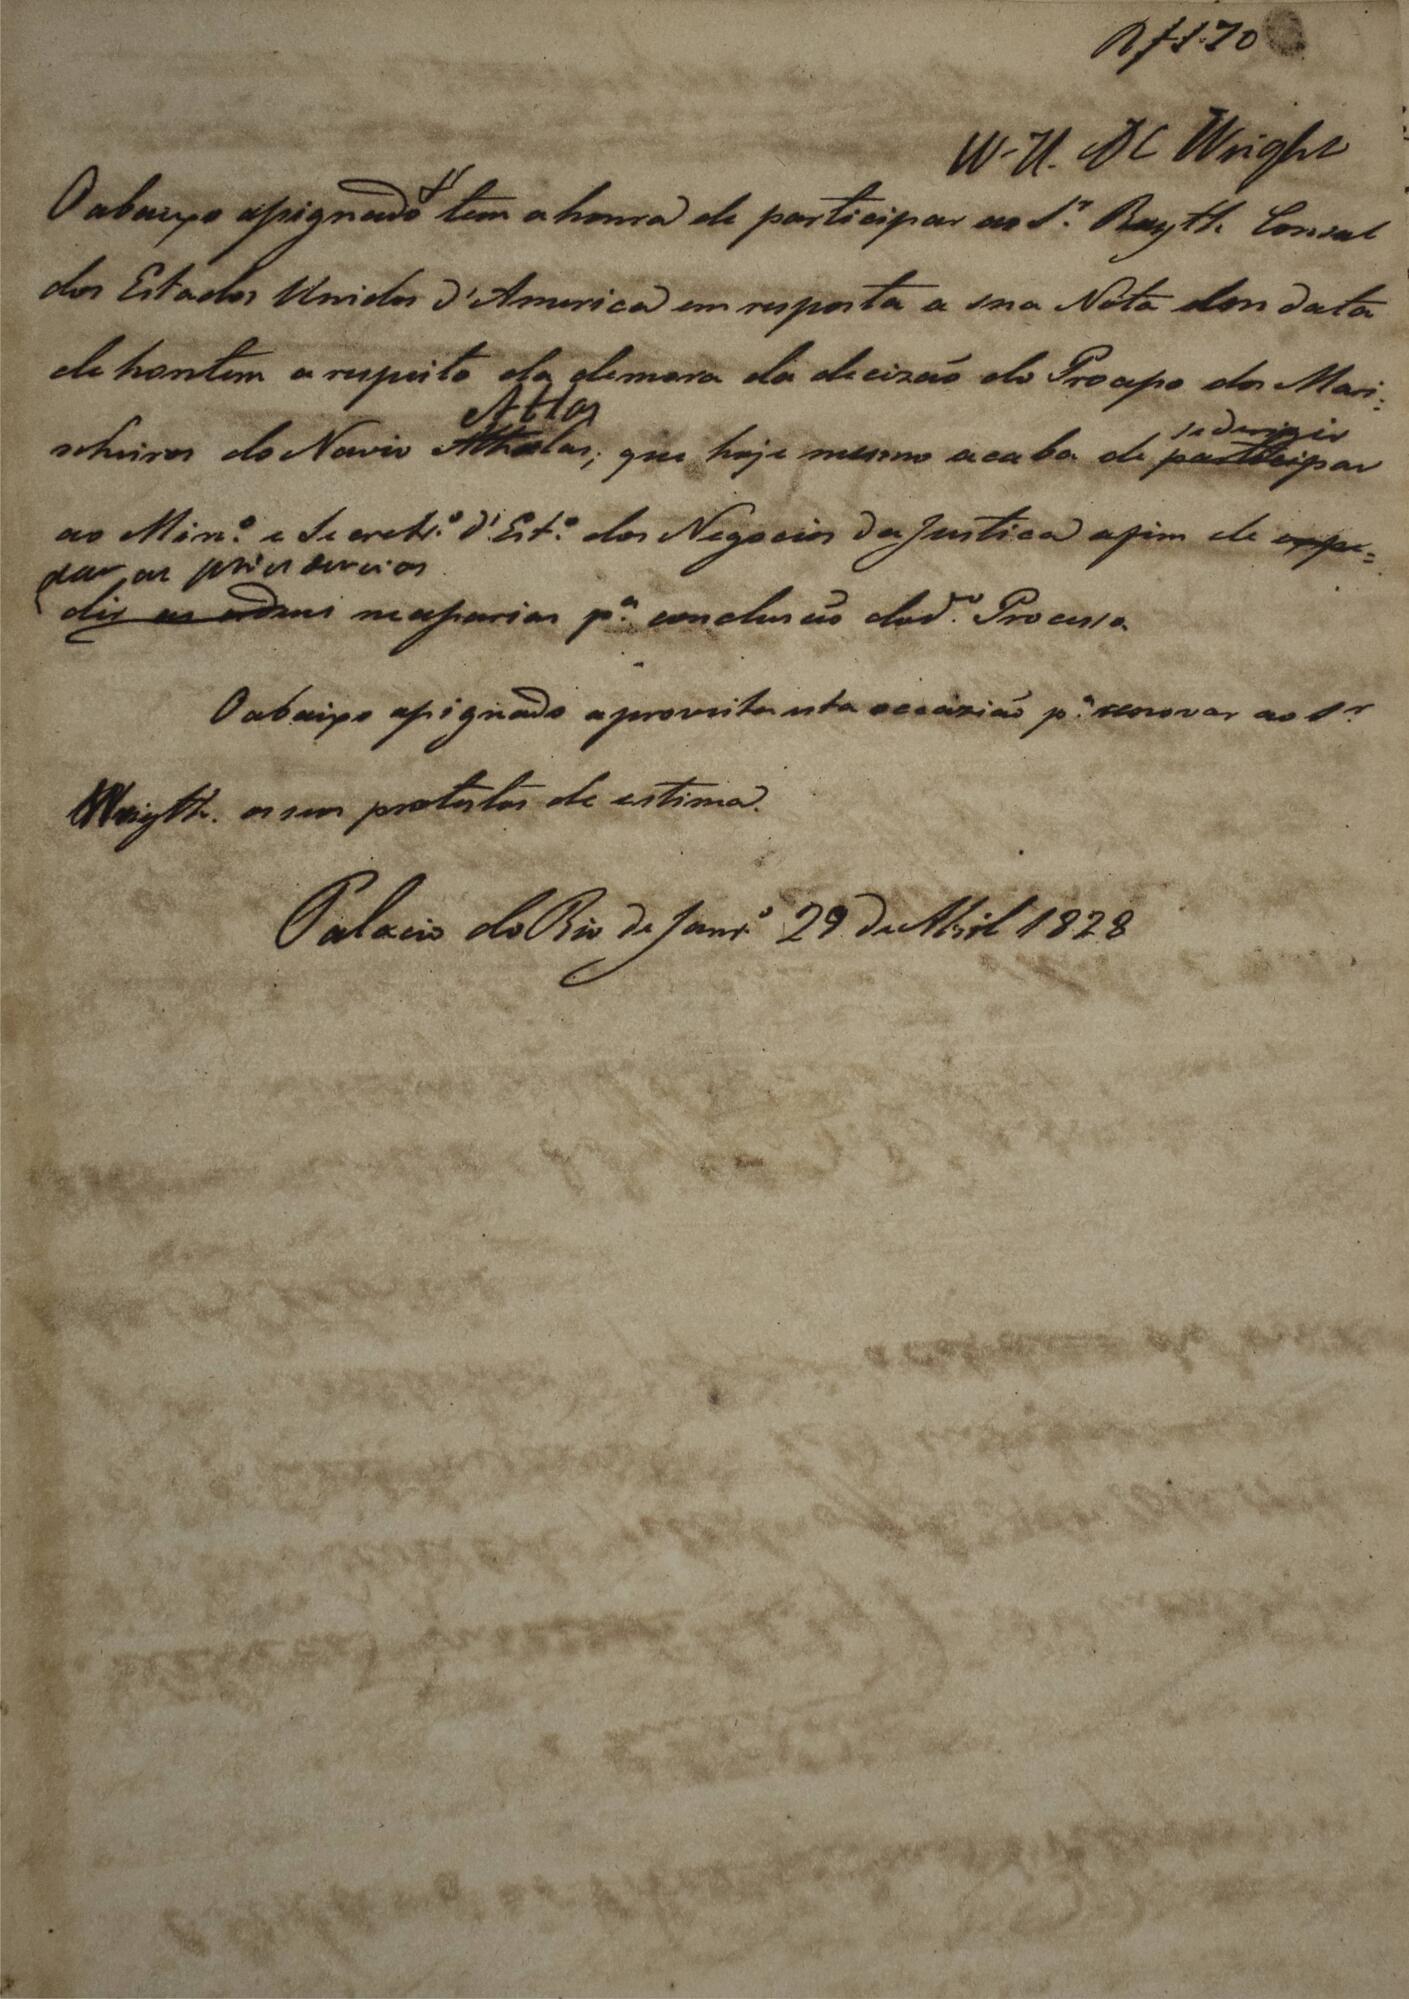 W. H. DC Wright
O abaixo assignado tem a honra de participar ao Sr. Rayth. Consul
dos Estados Unidos d'America em resposta a sua Nota don data
de hontem a respeito da demora da decizão do Processo dos Mari=
Atlas
se dirigir
nheiros do Navio Athalas, que hoje mesmo acaba de participar
ao Minº. e Secretrº. d'Estº. dos Negocios da Justica afim de expe=
dar as providencias
dir as ordens necessarias pª. conclusão dodº. Processo.
O abaixo assignado aproveita esta occazião pª. renovar ao Sr
Wrigth. os seus protestos de estima.
Palacio do Rio de Janrº 29 de Abril 1828